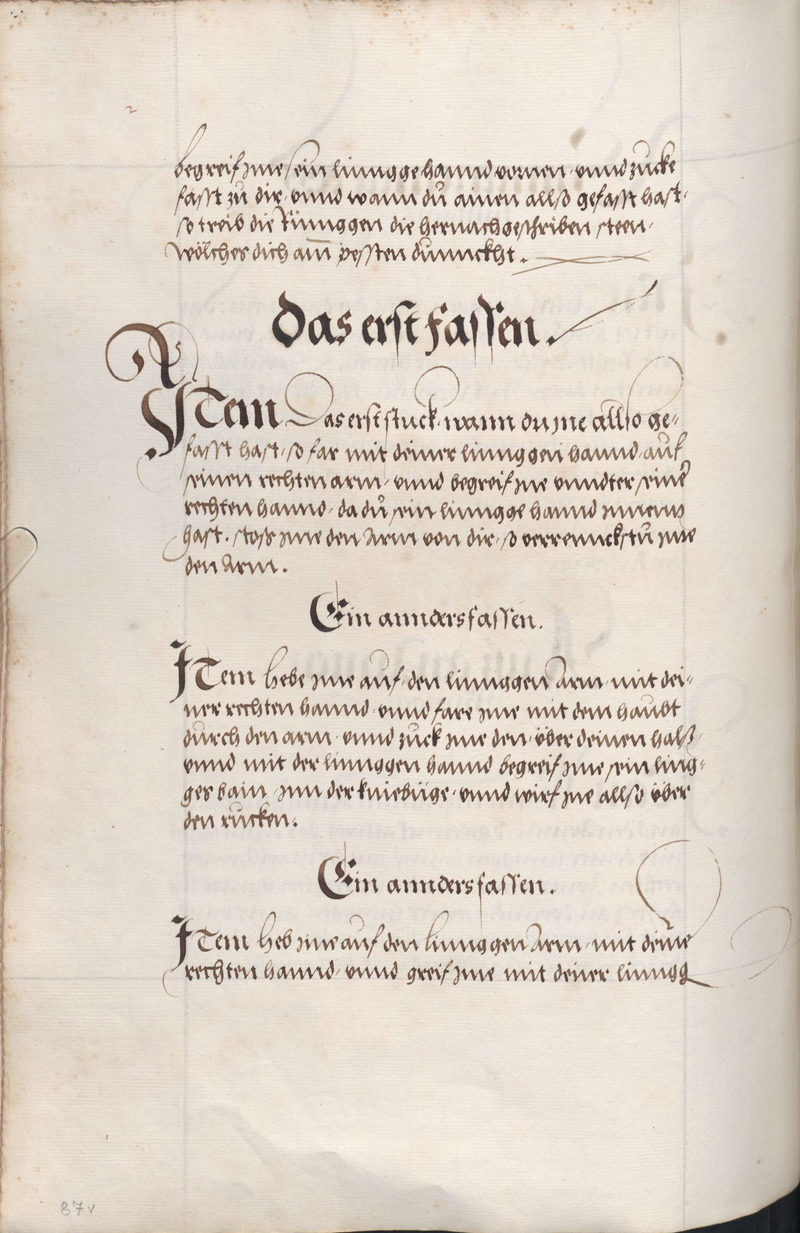 begreif jme sein linngge hannd vornen, vnnd zucke
fasst zu dir, vnnd wann dů ainen allso gefasst hast,
so treib die Rinnggen die hernach geschriben steen,
wölches dich am̄ pessten dunnckht.
Das erst fassen.
ITem Das erst stuck, wann du jne allso ge-
fasst hast, so far mit deiner linnggen hannd, auf
seinen rechten arm, vnnd begreif jne vnndter seiner
rechten hannd, da dů sein linngge hannd jnnenn
hast, stoss jme den Arm von dir, so verrennckstů jme
den Arm.
Ein annders fassen.
ITem hebe jme auf den linnggen Arm, mit dei-
ner rechten hannd, vnnd fare jme mit dem haubt
durch den arm, vnnd zuck jme den, über deinen halss,
vnnd mit der linnggen hannd begreif jme sein ling-
ges bain jnn der kniebüge, vnnd wirf jne allso über
den rücken.
Ein annders fassen.
ITem heb jme auf den linnggen Arm, mit deine
rechten hannd, vnnd greif jme mit deiner linngg
87v